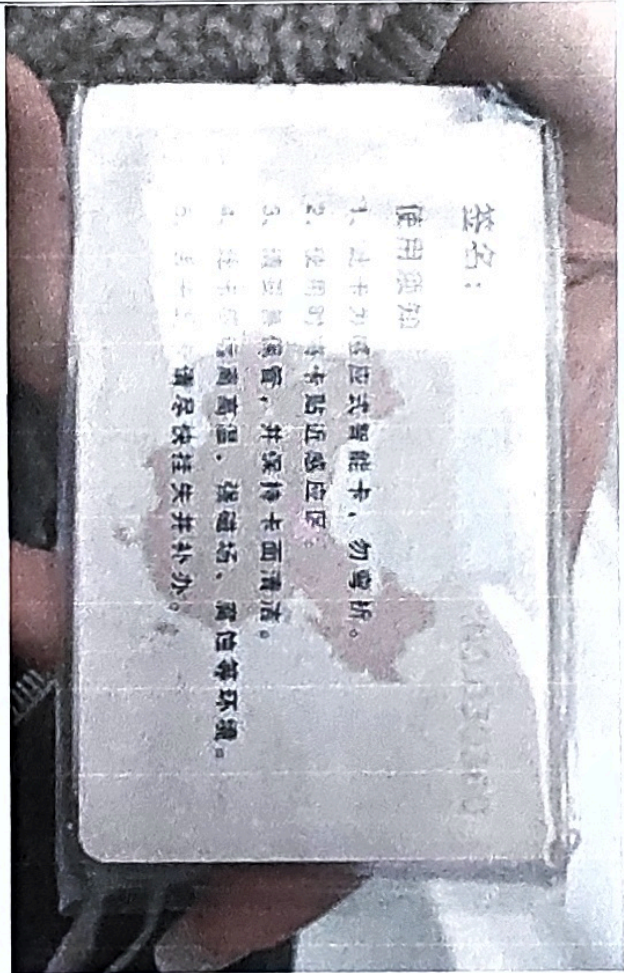 签名：
使用须知
1. 此卡为感应式智能卡、勿弯折。
2. 使用时将卡贴近感应区。
3. 请妥善保管，并保持卡面清洁。
4. 此卡应远离高温、强磁场、腐蚀等环境。
5. 请尽快挂失并补办。